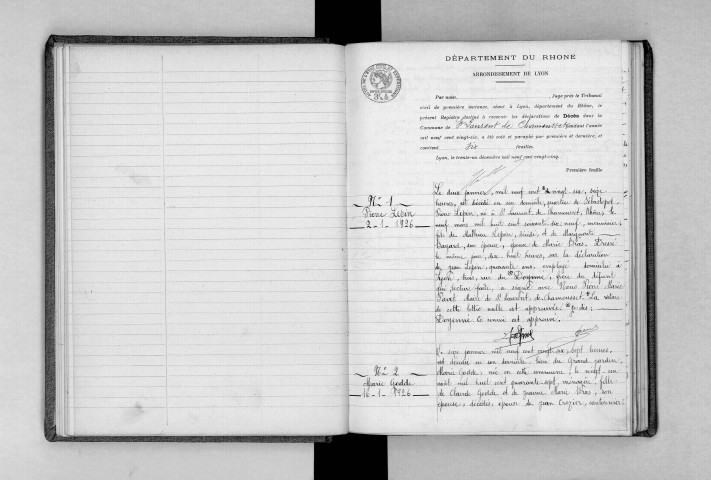 DÉPARTEMENT DU RHONE
ARRONDISSEMENT DE LYON
Par nous, Juge près le Tribunal
civil de première instance, séant à Lyon, département du Rhône, le
présent Registre destiné à recevoir les déclarations de Décès dans la
Commune de St Laurent de Chamousset pendant l'année
mil neuf cent vingt-six, a été coté et paraphé par première et dernière, et
contient dix feuilles.
Lyon, le trente-un décembre mil neuf cent vingt-cinq.
Première feuille
No 1
Pierre Lepin
2-1-1926
Le deux janvier, mil neuf cent vingt six, seize
heures, est décédé en son domicile, quartier de
Pierre Lepin, né à St Laurent de Chamousset, Rhône, le
neuf mars mil huit cent soixante dix neuf,
fils de Mathieu Lepin, décédé, et de Marguerite
Bazard, son épouse, époux de Marie Bras. Dressé
le même jour, dix huit heures, sur la déclaration
de Jean Lepin, quarante ans, employé domicilié à
Lyon, trois, rue du Doyenné, frère du défunt
qui, lecture faite, a signé avec Nous Pierre Marie
maire de St Laurent de Chamousset. La rature
de cette lettre nulle est approuvée.
Doyenné. Ce renvoi est approuvé.
No 2
Marie Godde
16-1-1926
Le seize janvier mil neuf cent vingt six, sept heures,
est décédée en son domicile, lieu du Grand jardin,
Marie Godde, née en cette commune le vingt un
août mil huit cent quarante sept, ménagère, fille
de Claude Godde et de Jeanne Marie Bras, son
épouse, décédés, épouse de Jean Crozier, cantonnier.